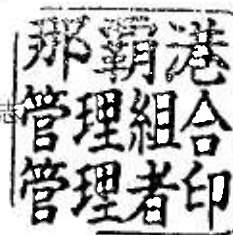 那覇港
管理組合
管理者印